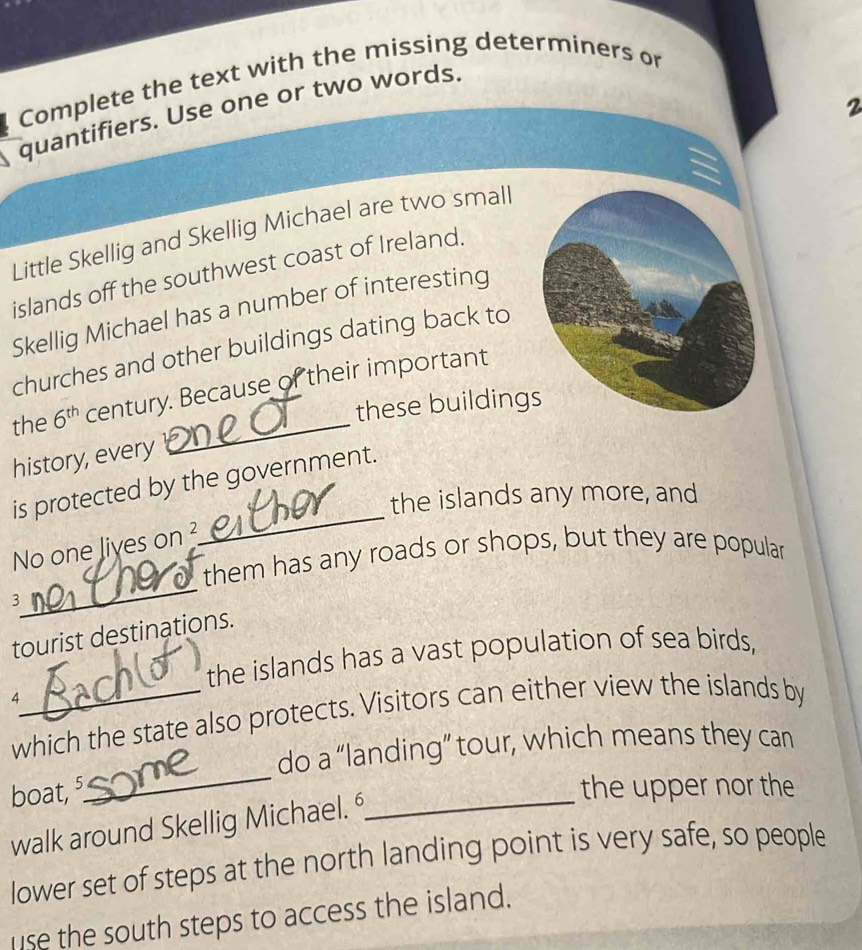 Complete the text with the missing determiners or
quantifiers. Use one or two words.
2
Little Skellig and Skellig Michael are two small
islands off the southwest coast of Ireland.
Skellig Michael has a number of interesting
churches and other buildings dating back to
the 6th century. Because of their important
history, every 1 one of these buildings
is protected by the government.
No one lives on 2 either the islands any more, and
3 neither of them has any roads or shops, but they are popular
tourist destinations.
4 Each (of) the islands has a vast population of sea birds,
which the state also protects. Visitors can either view the islands by
boat, 5 some do a "landing" tour, which means they can
walk around Skellig Michael. 6 the upper nor the
lower set of steps at the north landing point is very safe, so people
use the south steps to access the island.